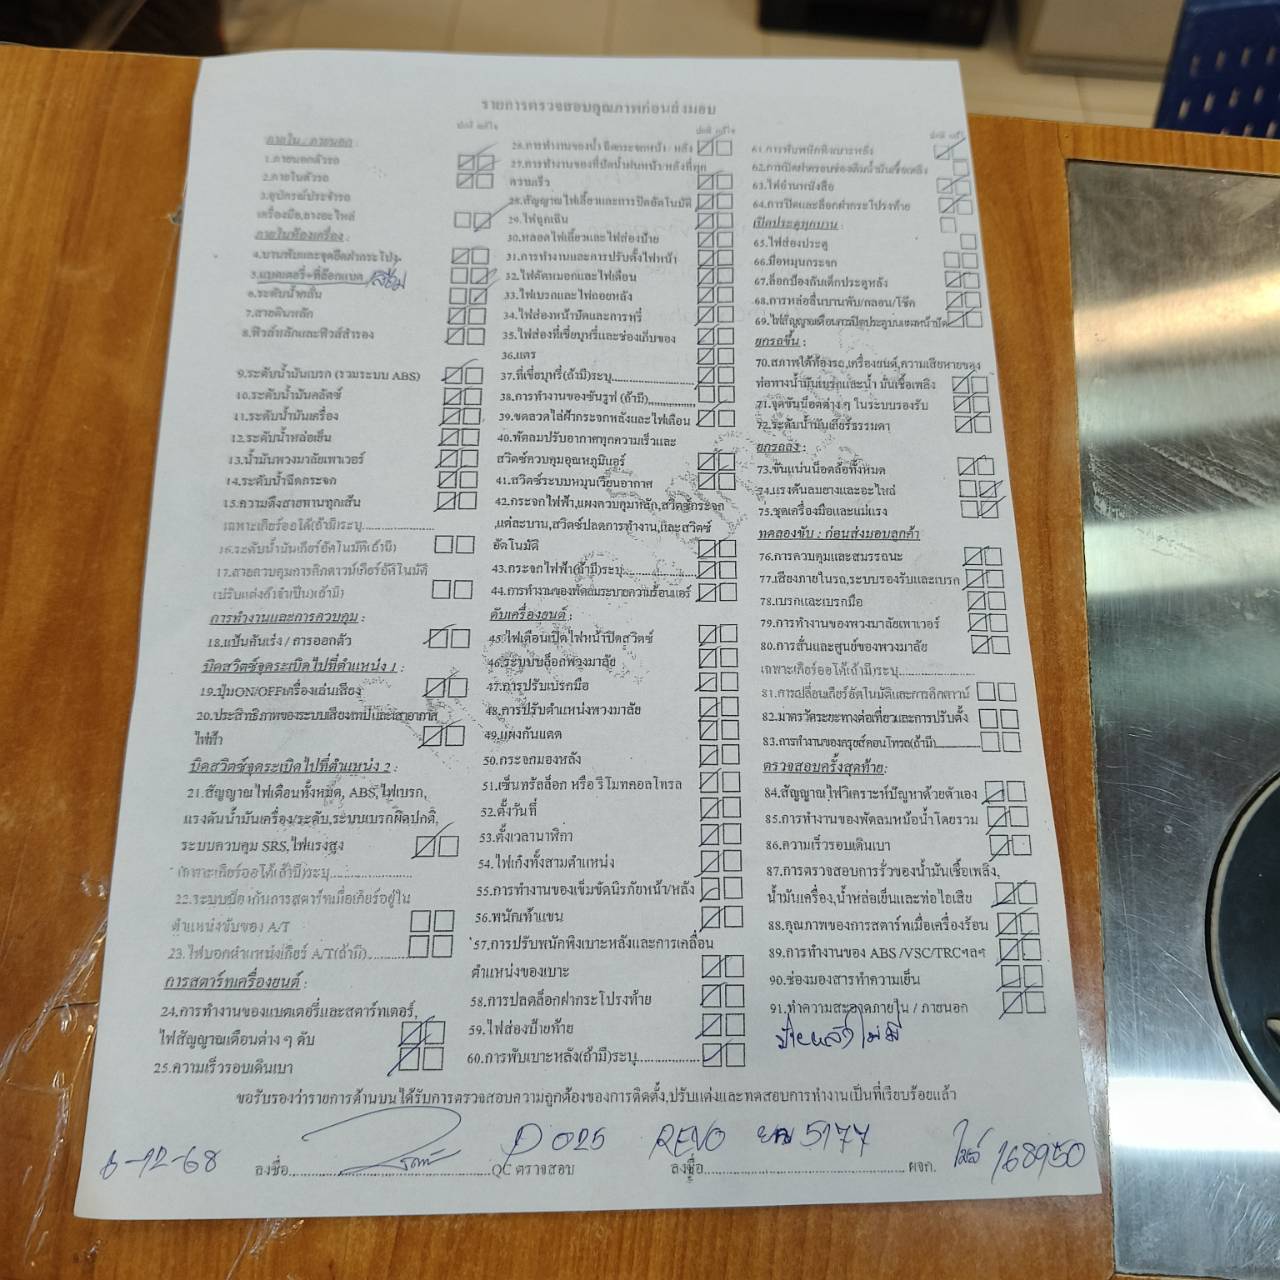 รายการตรวจสอบคุณภาพก่อนส่งมอบ
ปกติ แก้ไข
ภายใน / ภายนอก :
1.ภายนอกตัวรถ
2.ภายในตัวรถ
3.อุปกรณ์ประจำรถ
เครื่องมือ,ยางอะไหล่
ภายในห้องเครื่อง :
4.บานพับและจุดยึดฝากระโปรง
5.แบตเตอรี่+ที่ล๊อกแบต เสื่อม
6.ระดับน้ำกลั่น
7.สายดินหลัก
8.ฟิวส์หลักและฟิวส์สำรอง
9.ระดับน้ำมันเบรก (รวมระบบ ABS)
10.ระดับน้ำมันคลัตช์
11.ระดับน้ำมันเครื่อง
12.ระดับน้ำหล่อเย็น
13.น้ำมันพวงมาลัยเพาเวอร์
14.ระดับน้ำฉีดกระจก
15.ความตึงสายพานทุกเส้น
เฉพาะเกียร์ออโต้(ถ้ามี)ระบุ
16.ระดับน้ำมันเกียร์อัตโนมัติ(ถ้ามี)
17.สายควบคุมการคิกดาวน์เกียร์อัติโนมัติ
(ปรับแต่งถ้าจำเป็น)(ถ้ามี)
การทำงานและการควบคุม :
18.แป้นคันเร่ง / การออกตัว
บิดสวิตซ์จุดระเบิดไปที่ตำแหน่ง 1 :
19.ปุ่มON/OFFเครื่องเล่นเสียง
20.ประสิทธิภาพของระบบเสียงเทปและเสาอากาศ
ไฟฟ้า
บิดสวิตซ์จุดระเบิดไปที่ตำแหน่ง 2 :
21.สัญญาณไฟเตือนทั้งหมด, ABS,ไฟเบรก,
แรงดันน้ำมันเครื่อง/ระดับ,ระบบเบรกผิดปกติ,
ระบบควบคุม SRS,ไฟแรงสูง
เฉพาะเกียร์ออโต้(ถ้ามี)ระบุ
22.ระบบป้องกันการสตาร์ทเมื่อเกียร์อยู่ใน
ตำแหน่งขับของ A/T
23.ไฟบอกตำแหน่งเกียร์ A/T(ถ้ามี)
การสตาร์ทเครื่องยนต์ :
24.การทำงานของแบตเตอรี่และสตาร์ทเตอร์,
ไฟสัญญาณเตือนต่าง ๆ ดับ
25.ความเร็วรอบเดินเบา
ปกติ แก้ไข
26.การทำงานของน้ำ ฉีดกระจกหน้า / หลัง
27.การทำงานของที่ปัดน้ำฝนหน้า/หลังที่ทุก
ความเร็ว
28.สัญญาณไฟเลี้ยวและการปิดอัตโนมัติ
29.ไฟฉุกเฉิน
30.หลอดไฟเลี้ยวและไฟส่องป้าย
31.การทำงานและการปรับตั้งไฟหน้า
32.ไฟตัดหมอกและไฟเตือน
33.ไฟเบรกและไฟถอยหลัง
34.ไฟส่องหน้าปัดและการหรี่
35.ไฟส่องที่เขี่ยบุหรี่และช่องเก็บของ
36.แตร
37.ที่เขี่ยบุหรี่(ถ้ามี)ระบุ
38.การทำงานของซันรูฟ (ถ้ามี)
39.ขดลวดไล่ฝ้ากระจกหลังและไฟเตือน
40.พัดลมปรับอากาศทุกความเร็วและ
สวิตซ์ควบคุมอุณหภูมิแอร์
41.สวิตซ์ระบบหมุนเวียนอากาศ
42.กระจกไฟฟ้า,แผงควบคุมหลัก,สวิตซ์กระจก
,แต่ละบาน,สวิตซ์ปลดการทำงาน,และสวิตซ์
อัตโนมัติ
43.กระจกไฟฟ้า(ถ้ามี)ระบุ
44.การทำงานของพัดลมระบายความร้อนแอร์
ดับเครื่องยนต์ :
45.ไฟเตือนเปิดไฟหน้าปิดสวิตซ์
46.ระบบบล็อกพวงมาลัย
47.การปรับเบรกมือ
48.การปรับตำแหน่งพวงมาลัย
49.แผงกันแดด
50.กระจกมองหลัง
51.เซ็นทรัลล็อก หรือ รีโมทคอลโทรล
52.ตั้งวันที่
53.ตั้งเวลานาฬิกา
54.ไฟเก๋งทั้งสามตำแหน่ง
55.การทำงานของเข็มขัดนิรภัยหน้า/หลัง
56.พนักเท้าแขน
57.การปรับพนักพิงเบาะหลังและการเคลื่อน
ตำแหน่งของเบาะ
58.การปลดล็อกฝากระโปรงท้าย
59.ไฟส่องป้ายท้าย
60.การพับเบาะหลัง(ถ้ามี)ระบุ
ปกติ แก้ไข
61.การพับพนักพิงเบาะหลัง
62.การเปิดฝาครอบช่องเติมน้ำมันเชื้อเพลิง
63.ไฟอ่านหนังสือ
64.การปิดและล็อกฝากระโปรงท้าย
เปิดประตูทุกบาน :
65.ไฟส่องประตู
66.มือหมุนกระจก
67.ล็อกป้องกันเด็กประตูหลัง
68.การหล่อลื่นบานพับ/กลอน/โช๊ค
69.ไฟสัญญาณเตือนการเปิดประตูบนแผงหน้าปัด
ยกรถขึ้น :
70.สภาพใต้ท้องรถ,เครื่องยนต์,ความเสียหายของ
ท่อทางน้ำมันเบรกและน้ำ มันเชื้อเพลิง
71.จุดขันน็อตต่าง ๆ ในระบบรองรับ
72.ระดับน้ำมันเกียร์ธรรมดา
ยกรถลง :
73.ขันแน่นน็อตล้อทั้งหมด
74.แรงดันลมยางและอะไหล่
75.ชุดเครื่องมือและแม่แรง
ทดลองขับ : ก่อนส่งมอบลูกค้า
76.การควบคุมและสมรรถนะ
77.เสียงภายในรถ,ระบบรองรับและเบรก
78.เบรกและเบรกมือ
79.การทำงานของพวงมาลัยเพาเวอร์
80.การสั่นและศูนย์ของพวงมาลัย
เฉพาะเกียร์ออโต้(ถ้ามี)ระบุ
81.การเปลี่ยนเกียร์อัตโนมัติและการคิกดาวน์
82.มาตรวัดระยะทางต่อเที่ยวและการปรับตั้ง
83.การทำงานของครุยส์คอนโทรล(ถ้ามี)
ตรวจสอบครั้งสุดท้าย:
84.สัญญาณไฟวิเคราะห์ปัญหาด้วยตัวเอง
85.การทำงานของพัดลมหม้อน้ำโดยรวม
86.ความเร็วรอบเดินเบา
87.การตรวจสอบการรั่วของน้ำมันเชื้อเพลิง,
น้ำมันเครื่อง,น้ำหล่อเย็นและท่อไอเสีย
88.คุณภาพของการสตาร์ทเมื่อเครื่องร้อน
89.การทำงานของ ABS /VSC/TRCฯลฯ
90.ช่องมองสารทำความเย็น
91.ทำความสะอาดภายใน / ภายนอก
ป้ายหลังไม่มี
ขอรับรองว่ารายการด้านบนได้รับการตรวจสอบความถูกต้องของการติดตั้ง,ปรับแต่งและทดสอบการทำงานเป็นที่เรียบร้อยแล้ว
D025 REVO 5177
6-12-68 ลงชื่อ QC ตรวจสอบ ลงชื่อ ผจก. ไมล์ 168950